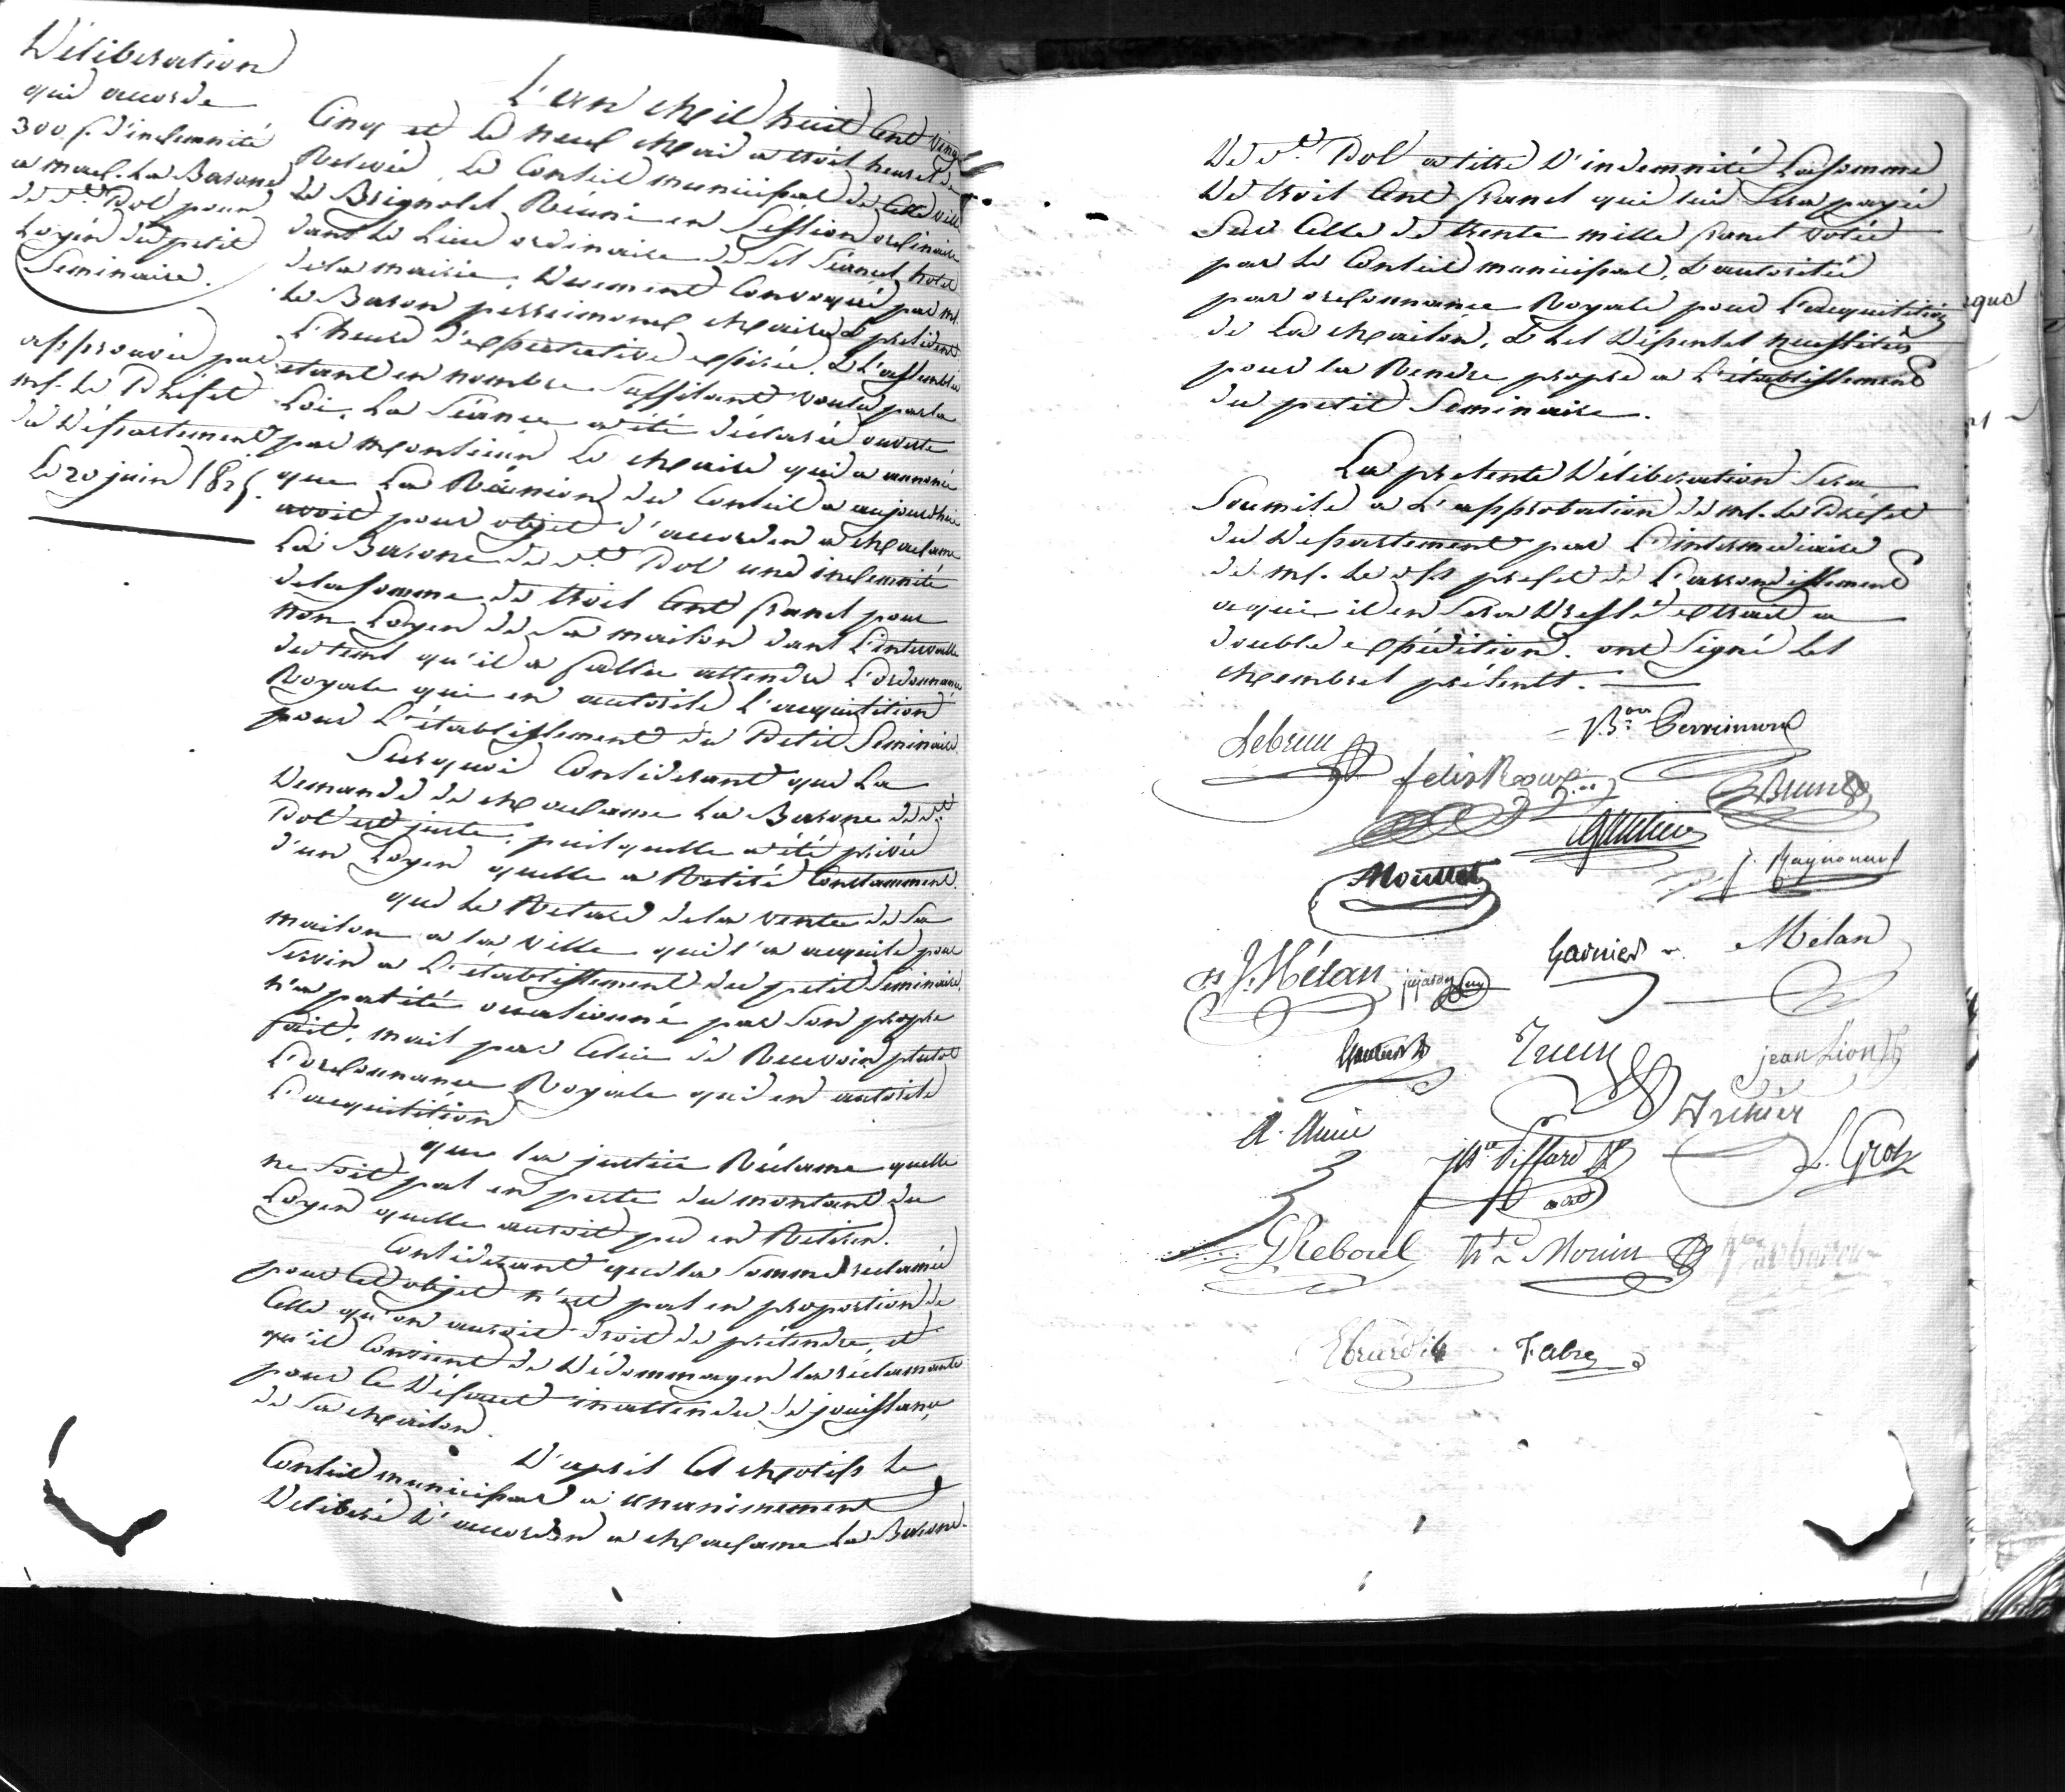 Déliberation
qui accorde
300 f. d'indemnité
a mad. la Barone
de Ste Dol pour
Loyer du petit
Seminaire.
approuvée par
mr. le Préfet
du Département
le 20 juin 1825.
L'an Mil huit Cent vingt
Cinq et le neuf Mai a trois heures de
Relevée, le Conseil municipal de Cette ville
de Brignoles Réuni en Session ordinaire
dans le Lieu ordinaire de ses séances, hotel
de la mairie, Duement Convoqué par mr.
le Baron perrimond Maire & président
L'heure d'expectative expirée, & l'assemblée
etant en nombre suffisant voulu par la
Loi, La Séance a été déclarée ouverte
par Monsieur le Maire qui a annoncé
que La Réunion du Conseil a aujourdhui
avoit pour objet d'accorder a Madame
La Barone de Ste Dol une indemnité
de la somme de trois Cent francs pour
non Loyer de sa maison dans l'intervalle
du tems qu'il a fallu attendre l'ordonnance
Royale qui en autorise l'acquisition
pour l'établissement du Petit Seminaire.
Surquoi Considerant que La
Demande de Madame La Barone de Ste
Dol est juste, puisquelle a été privée
d'un Loyer quelle a Retiré Constamment.
que le Retard de la vente de sa
maison a la ville qui l'a acquise pour
servir a L'établissement du petit Seminaire,
n'a pas été occasionné par son propre
fait, mais par Celui de Recevoir plutot
L'ordonnance Royale qui en autorise
L'acquisition
que la justice Réclame quelle
ne soit pas en perte du montant du
Loyer quelle auroit pu en Retirer.
Considerant que la Somme reclamée
pour Cet objet n'est pas en proportion de
Celle qu'on auroit droit de prétendre, et
qu'il Convient de Dédommager la réclamante
pour Ce Défaut inattendu de jouissance
de Sa Maison.
D'après Ces Motifs le
Conseil municipal a unanimement
Déliberé D'accorder a Madame La Barone
De Ste Dol a titre D'indemnité La somme
De trois Cent francs qui lui sera payée
Sur Celle de trente mille francs votée
par le Conseil municipal, & autorisée
par ordonnance Royale pour L'acquisition
de La Maison, & les Dépenses necessités
pour la Rendre propre a L'établissement
du petit Seminaire.
La presente Déliberation sera
Soumise a L'approbation de mr. le Préfet
du Departement par L'intermediaire
de mr. le sous prefet de L'arrondissement
a qui il en sera Dressé extrait a
double expédition. ont signé les
Membres présents.
Lebrun
Bon Perrimond
felix Roux
Brun
Gautier
Mouttet
J. Raynouard
J. Mélan
Garnier
Mélan
jean Lion
A. Amic
Trucy
J. Bte Piffard
L. Gros
G Reboul
Morin
Fabre